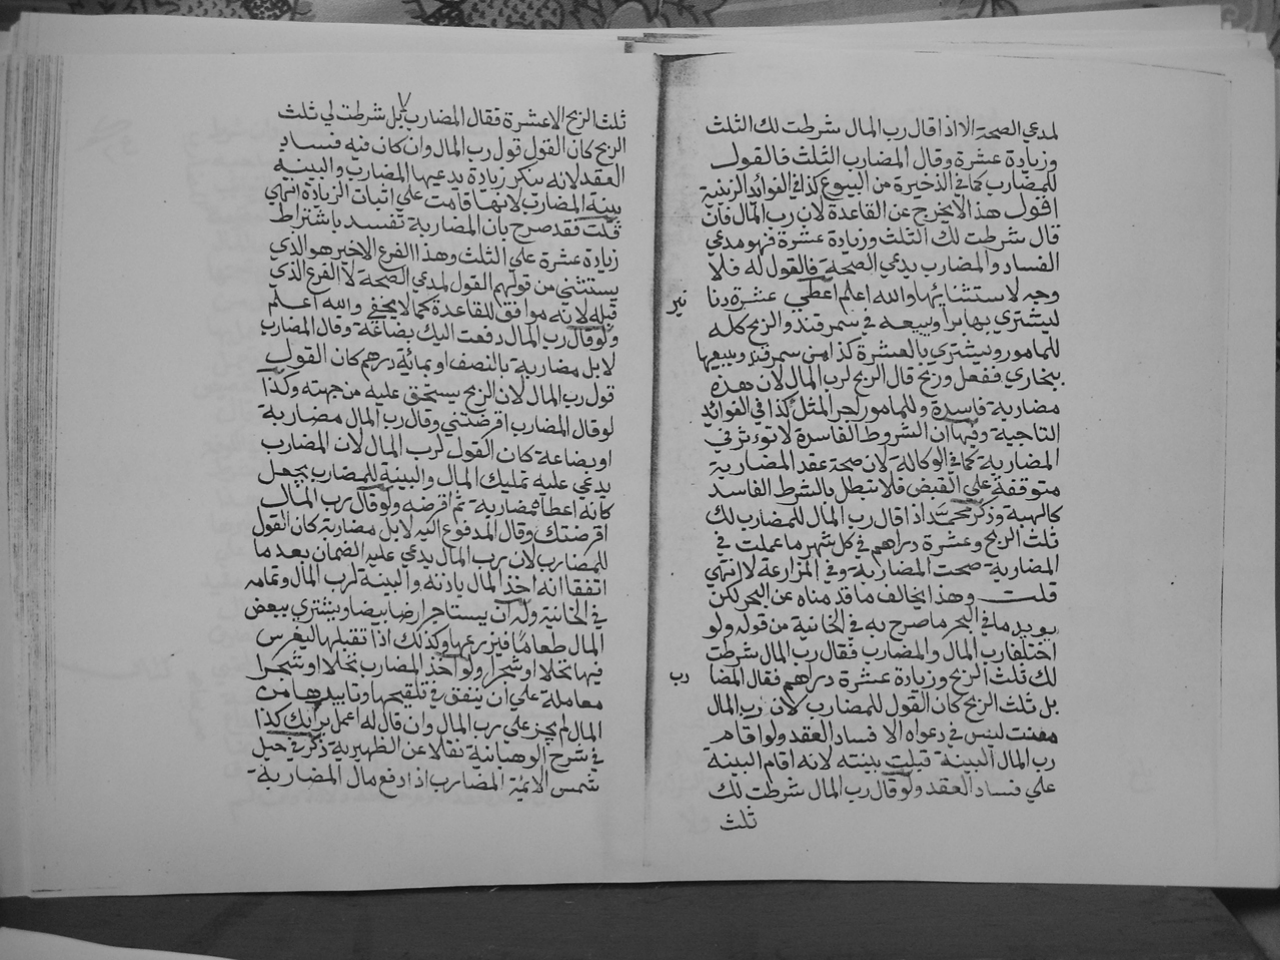 لمدعي الصحة الا اذا قال رب المال شرطت لك الثلث
وزيادة عشرة وقال المضارب الثلث فالقول
للمضارب كما في الذخيرة من البيوع كذا في الفوائد الزينية
اقول هذا لا يخرج عن القاعدة لان رب المال فان
قال شرطت لك الثلث وزيادة عشرة فهو مدعي
الفساد والمضارب يدعي الصحة فالقول له فلا
وجه لاستثنائها والله اعلم اعطي عشرة دنا
نير
ليشتري بها برا ويبيعه في سمرقند والربح كله
للمامور ويشتري بالعشرة كذا من سمرقند ويبيعها
ببخاري ففعل وربح قال الربح لرب المال لان هذه
مضاربة فاسدة وللمامور اجر المثل كذا في الفوائد
التاجية وفيها ان الشروط الفاسدة لا توءثر في
المضاربة كما في الوكالة لان صحة عقد المضاربة
متوقفة علي القبض فلا تبطل بالشرط الفاسد
كالهبة وذكر محمد اذا قال رب المال للمضارب لك
ثلث الربح وعشرة دراهم في كل شهر ما عملت في
المضاربة صحت المضاربة وفي المزارعة لا انتهي
قلت وهذا يخالف ما قدمناه عن البحر لكن
يويد ما في البحر ما صرح به في الخانية من قوله ولو
اختلف رب المال والمضارب فقال رب المال شرطت
لك ثلث الربح وزيادة عشرة دراهم فقال المضا
رب
بل ثلث الربح كان القول للمضارب لان رب المال
ليس في دعواه الا فساد العقد ولو اقام
رب المال البينة قبلت بينته لانه اقام البينة
علي فساد العقد ولو قال رب المال شرطت لك
ثلث
ثلث الربح الا عشرة فقال المضارب بل شرطت لي ثلث
الربح كان القول قول رب المال وان كان فيه فساد
العقد لانه ينكر زيادة يدعيها المضارب والبينة
بينة المضارب لانها قامت علي اثبات الزيادة انتهي
قلت فقد صرح بان المضاربة تفسد باشتراط
زيادة عشرة علي الثلث وهذا الفرع الاخير هو الذي
يستثني من قولهم القول لمدعي الصحة لا الفرع الذي
قبله لانه موافق للقاعدة كما لا يخفي والله اعلم
ولو قال رب المال دفعت اليك بضاعة وقال المضارب
لا بل مضاربة بالنصف او بمائة درهم كان القول
قول رب المال لان الربح يستحق عليه من جهته وكذا
لو قال المضارب اقرضتني وقال رب المال مضاربة
او بضاعة كان القول لرب المال لان المضارب
يدعي عليه تمليك المال والبينة للمضارب يجعل
كانه اعطاه مضاربة ثم اقرضه ولو قال رب المال
اقرضتك وقال المدفوع اليه لا بل مضاربة كان القول
للمضارب لان رب المال يدعي عليه الضمان بعد ما
اتفقا انه اخذ المال باذنه والبينة لرب المال وتمامه
في الخانية وله ان يستاجر ارضا بيضا ويشتري ببعض
المال طعاما فيزرعها وكذلك اذا تقبلها ليغرس
فيها نخلا او شجرا ولو اخذ المضارب نخلا او شجرا
معاملة علي ان ينفق في تلقيحها وتابيدها من
المال لم يجز علي رب المال وان قال له اعمل برأيك كذا
في شرح الوهبانية نقلا عن الظهيرية ذكر في حيل
شمس الائمة المضارب اذا دفع مال المضاربة